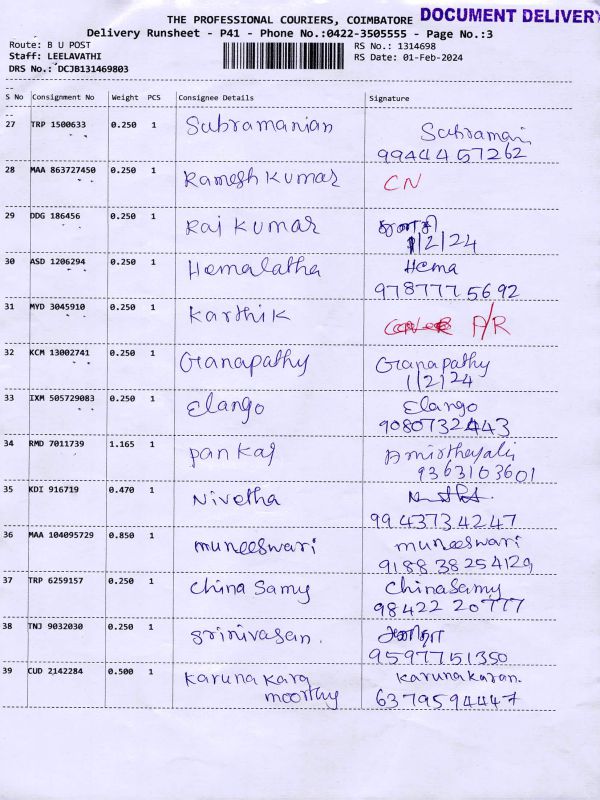 THE PROFESSIONAL COURIERS, COIMBATORE DOCUMENT DELIVERY
Delivery Runsheet - P41 - Phone No.:0422-3505555 - Page No.:3
Route: B U POST RS No.: 1314698
Staff: LEELAVATHI RS Date: 01-Feb-2024
DRS No.: DCJB131469803
S No Consignment No Weight PCS Consignee Details Signature
27 TRP 1500633 0.250 1 Subramanian Subramani
9944457262
28 MAA 863727450 0.250 1 Ramesh Kumar CN
29 DDG 186456 0.250 1 Raj Kumar
1/2/24
30 ASD 1206294 0.250 1 Hemalatha Hema
9787775692
31 MYD 3045910 0.250 1 Karthik P/R
32 KCM 13002741 0.250 1 Ganapathy Ganapathy
1/2/24
33 IXM 505729083 0.250 1 Elango Elango
9080732443
34 RMD 7011739 1.165 1 Pankaj
9363163601
35 KDI 916719 0.470 1 Nivetha
9943734247
36 MAA 104095729 0.850 1 muneeswari muneeswari
9188 38254129
37 TRP 6259157 0.250 1 China Samy ChinaSamy
98422 20777
38 TNJ 9032030 0.250 1 Srinivasan.
9597751350
39 CUD 2142284 0.500 1 Karunakara Karunakaran.
moorthy 6379594447